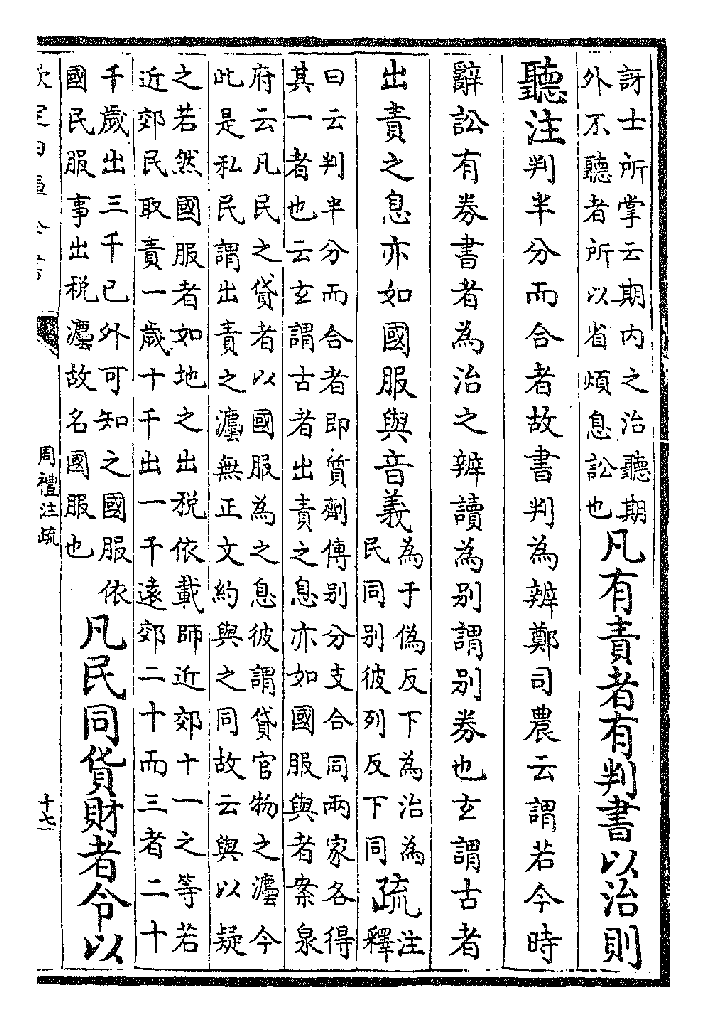 訝士所掌云期内之治聽期
外不聽者所以省煩息訟也
凡有責者有判書以治則
聽注判半分而合者故書判為辨鄭司農云謂若今時
辭訟有券書者為治之辨讀為别謂别券也玄謂古者
出責之息亦如國服與音義
為于偽反下為治為
民同别彼列反下同
疏
注
釋
曰云判半分而合者即質劑傳别分支合同兩家各得
其一者也云玄謂古者出責之息亦如國服與者案泉
府云凡民之貸者以國服為之息彼謂貸官物之灋今
此是私民謂出責之灋無正文約與之同故云與以疑
之若然國服者如地之出税依載師近郊十一之等若
近郊民取責一歲十千出一千遠郊二十而三者二十
千歲出三千已外可知之國服依
國民服事出税灋故名國服也
凡民同貨財者令以
周禮注疏
十七